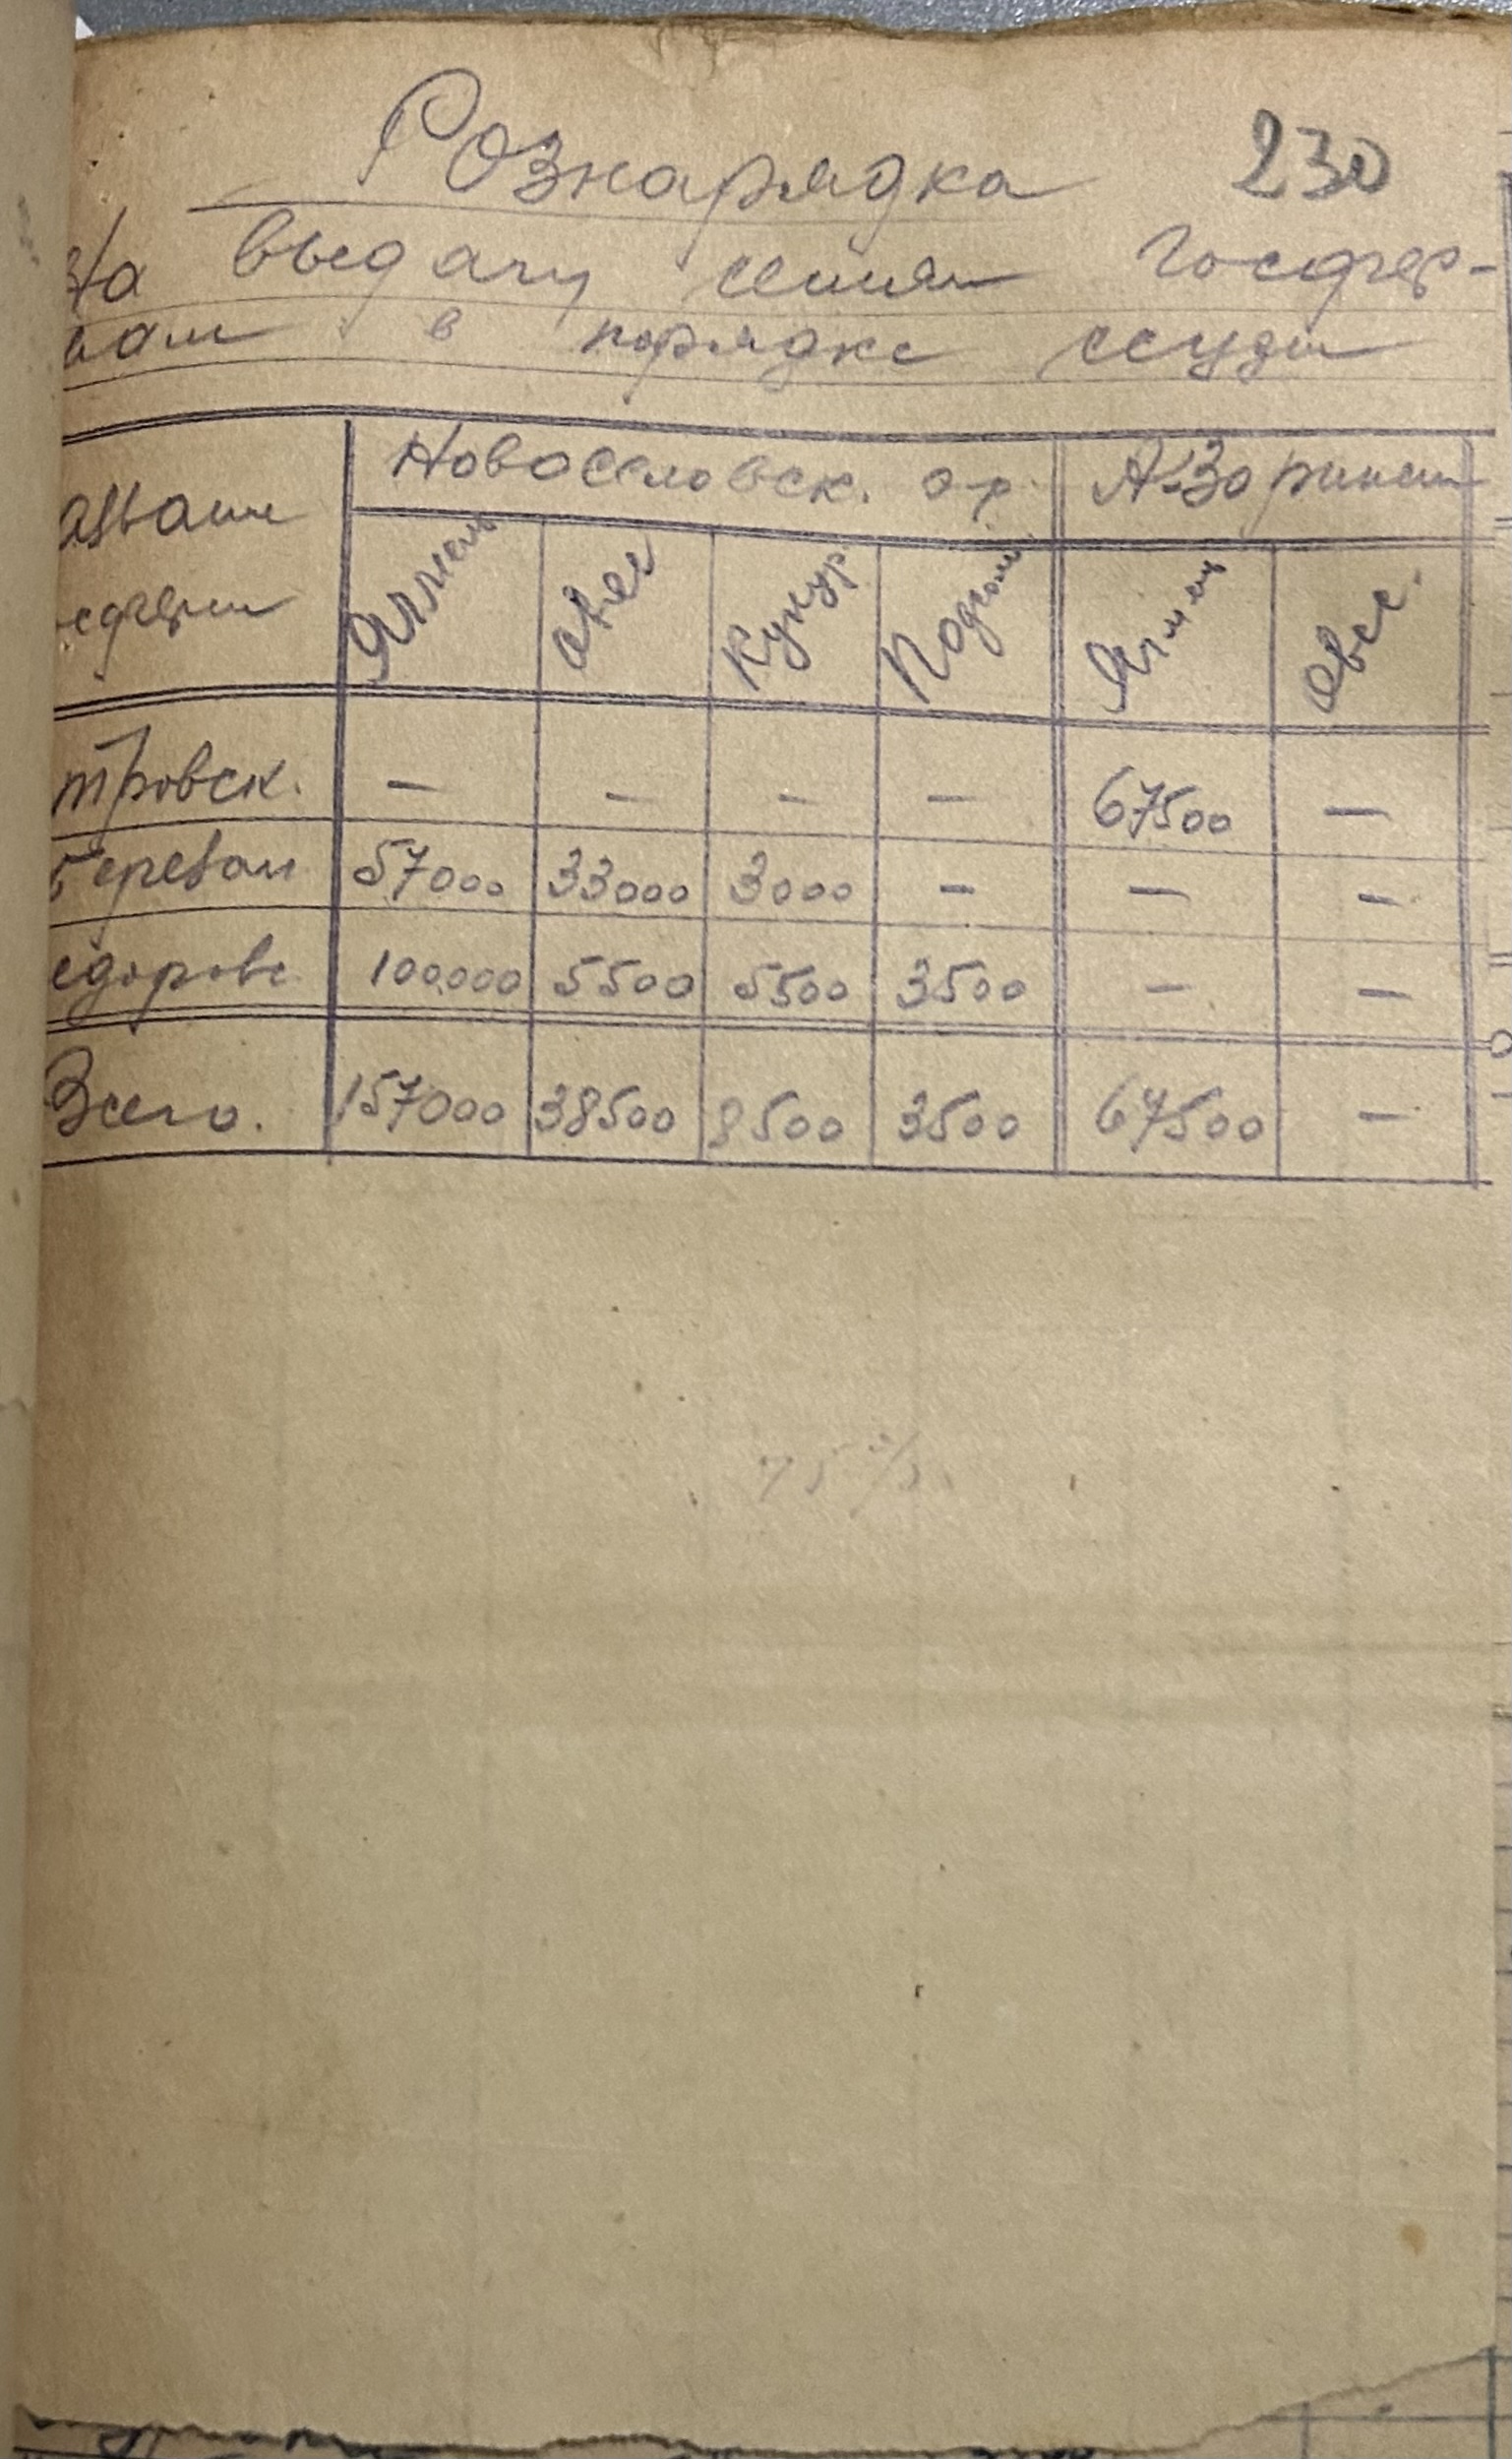 Рознарядка 230
На выдачу семян Госфер-
мам в порядке ссуды
азвание Новоселовск. о-р. А-Зоринск
осферм Ячмень Овес Кукур. Подсолн. Ячмень Овес.
тровск. — — — — 67500 —
береван 57000 33000 3000 — — —
едоровс 100.000 5500 5500 3500 — —
Всего. 157000 38500 8500 3500 67500 —